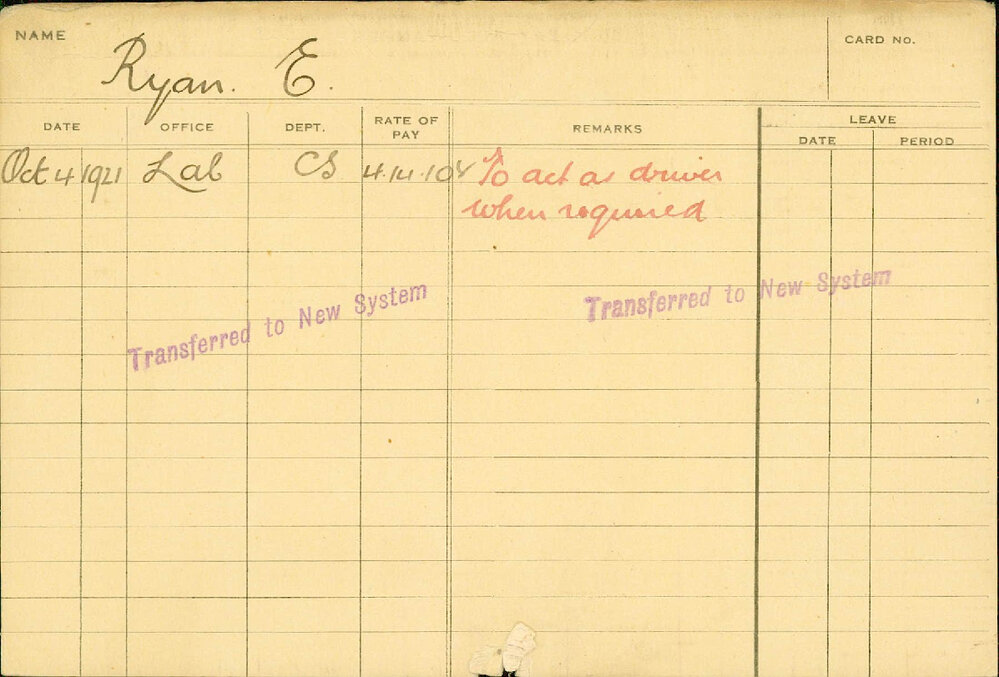 NAME Ryan. E. CARD No.
DATE OFFICE DEPT. RATE OF PAY REMARKS LEAVE
DATE PERIOD
Oct 4 1921 Lab CS 4.14.10 To act as driver
when required
Transferred to New System Transferred to New System